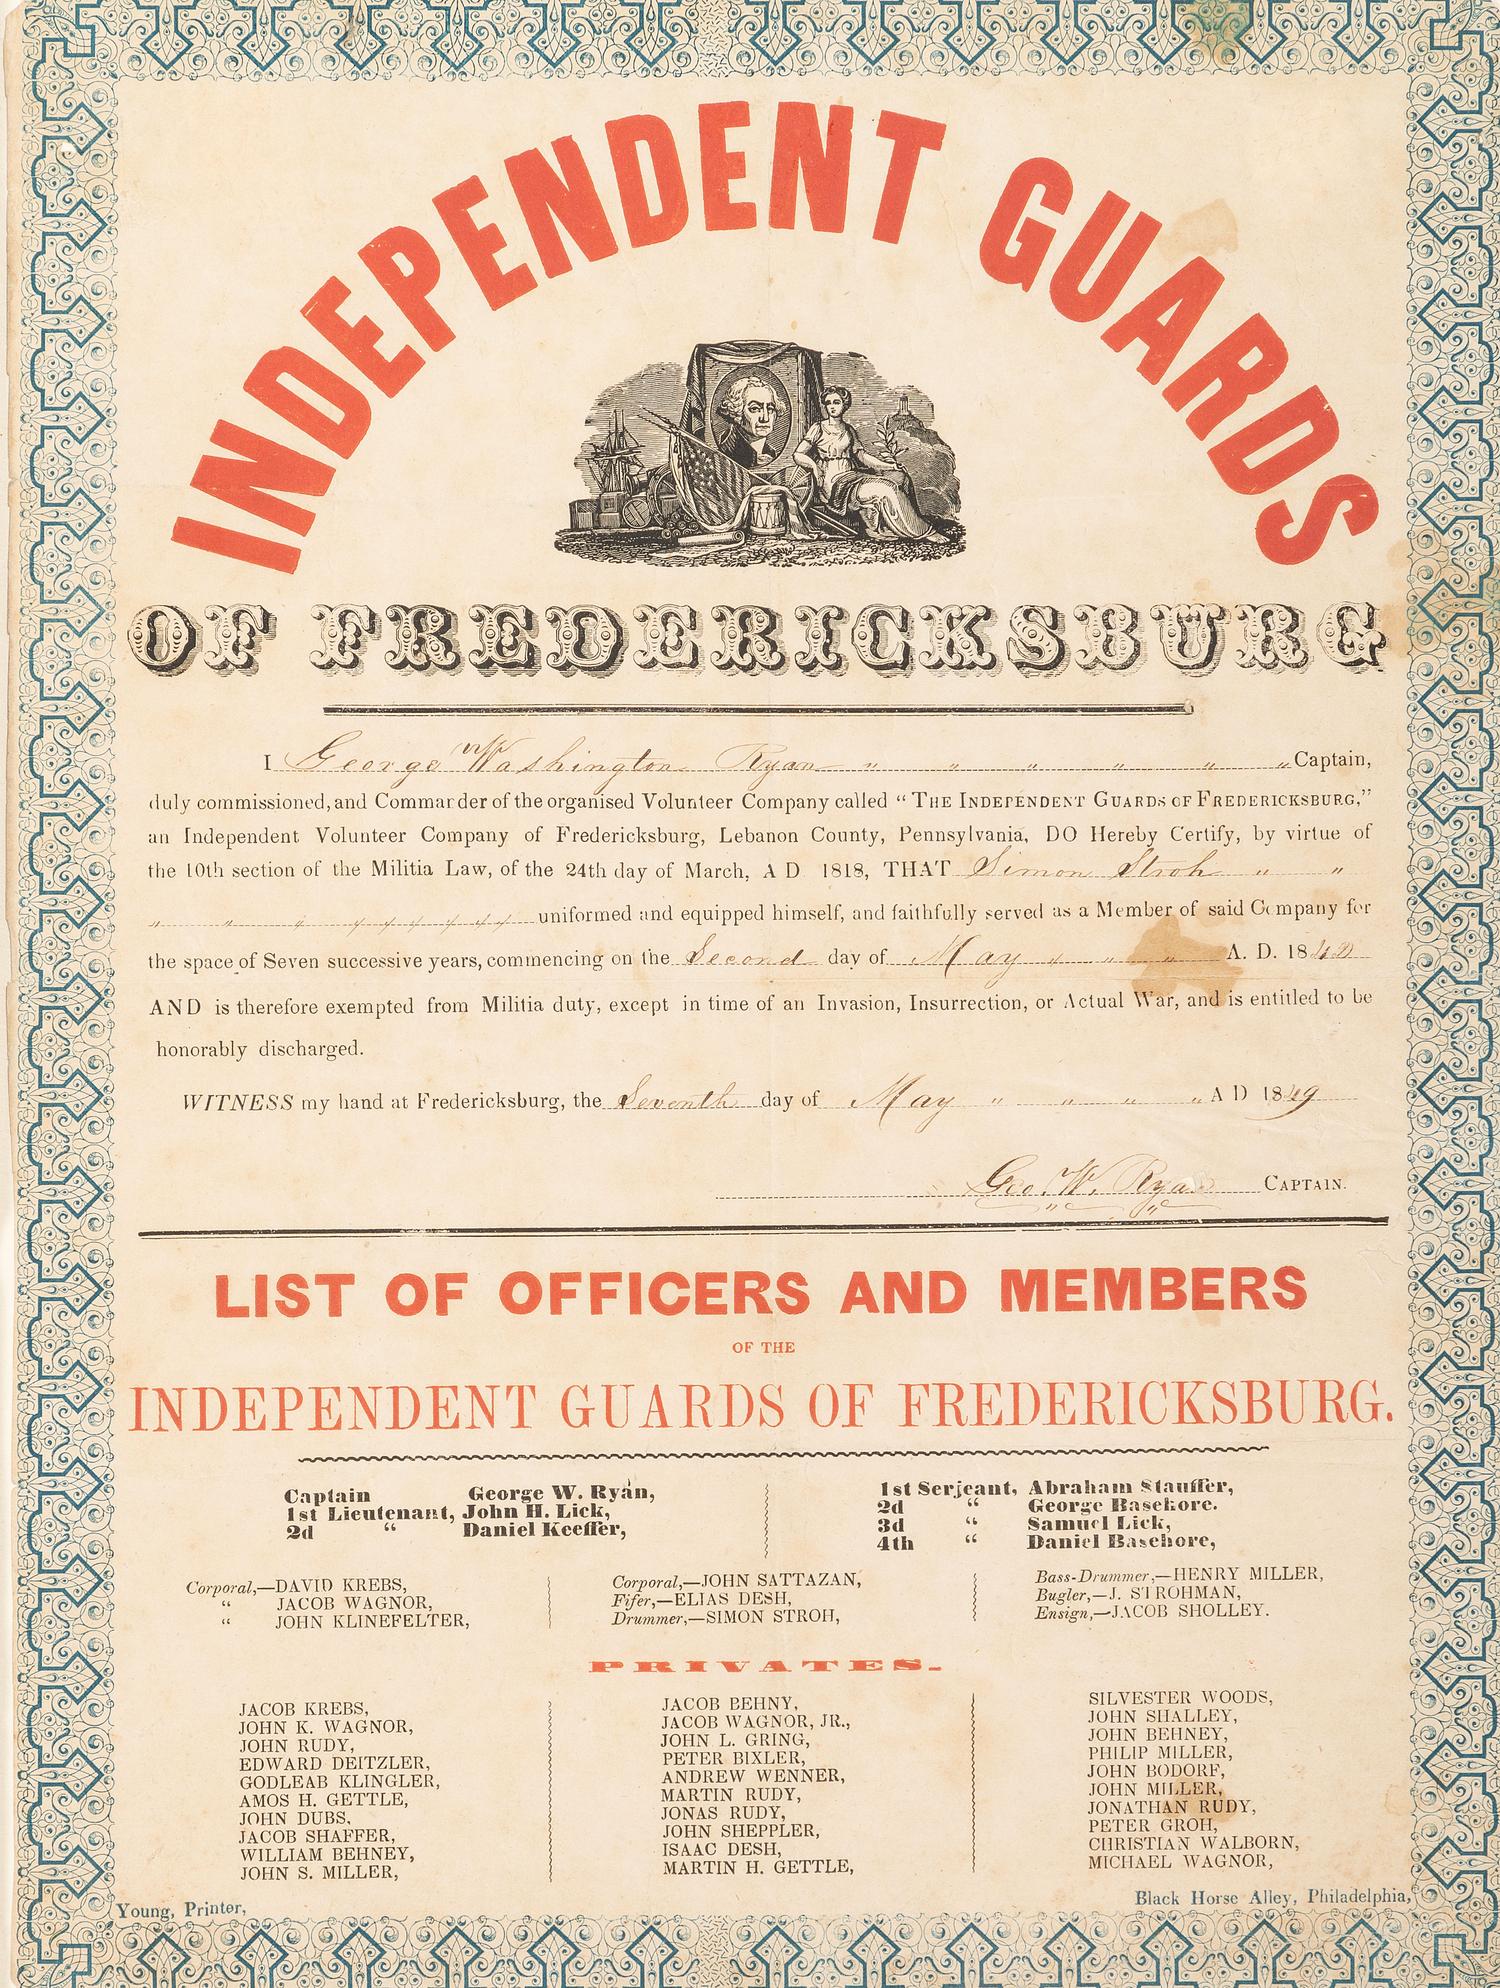 INDEPENDENT GUARDS
OF FREDERICKSBURG
I George Washington Ryan " " " " " " Captain,
duly commissioned, and Commander of the organised Volunteer Company called "THE INDEPENDENT GUARDS OF FREDERICKSBURG,"
an Independent Volunteer Company of Fredericksburg, Lebanon County, Pennsylvania, DO Hereby Certify, by virtue of
the 10th section of the Militia Law, of the 24th day of March, A D 1818, THAT Simon Stroh " "
" " " " " " " " " uniformed and equipped himself, and faithfully served as a Member of said Company for
the space of Seven successive years, commencing on the Second day of May " " " A. D. 1842
AND is therefore exempted from Militia duty, except in time of an Invasion, Insurrection, or Actual War, and is entitled to be
honorably discharged.
WITNESS my hand at Fredericksburg, the Seventh day of May " " " " A D 1849
Geo. W. Ryan CAPTAIN.
LIST OF OFFICERS AND MEMBERS
OF THE
INDEPENDENT GUARDS OF FREDERICKSBURG.
Captain George W. Ryan,
1st Lieutenant, John H. Lick,
2d " Daniel Keeffer,
1st Serjeant, Abraham Stauffer,
2d " George Basehore.
3d " Samuel Lick,
4th " Daniel Basehore,
Corporal,—DAVID KREBS,
" JACOB WAGNOR,
" JOHN KLINEFELTER,
Corporal,—JOHN SATTAZAN,
Fifer,—ELIAS DESH,
Drummer,—SIMON STROH,
Bass-Drummer,—HENRY MILLER,
Bugler,—J. STROHMAN,
Ensign,—JACOB SHOLLEY.
PRIVATES.
JACOB KREBS,
JOHN K. WAGNOR,
JOHN RUDY,
EDWARD DEITZLER,
GODLEAB KLINGLER,
AMOS H. GETTLE,
JOHN DUBS,
JACOB SHAFFER,
WILLIAM BEHNEY,
JOHN S. MILLER,
JACOB BEHNY,
JACOB WAGNOR, JR.,
JOHN L. GRING,
PETER BIXLER,
ANDREW WENNER,
MARTIN RUDY,
JONAS RUDY,
JOHN SHEPPLER,
ISAAC DESH,
MARTIN H. GETTLE,
SILVESTER WOODS,
JOHN SHALLEY,
JOHN BEHNEY,
PHILIP MILLER,
JOHN BODORF,
JOHN MILLER,
JONATHAN RUDY,
PETER GROH,
CHRISTIAN WALBORN,
MICHAEL WAGNOR,
Young, Printer,
Black Horse Alley, Philadelphia,